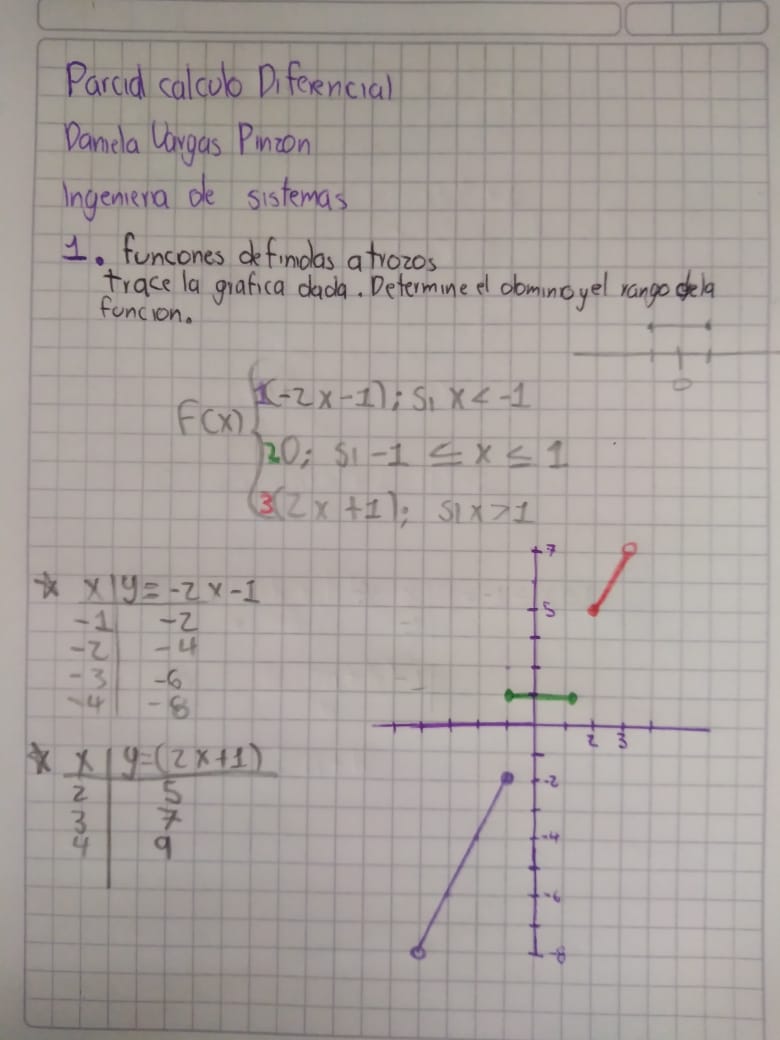 Parcial calculo Diferencial
Daniela Vargas Pinzon
Ingeniera de sistemas
1. funcones definidas a trozos
trace la grafica dada. Determine el dominio y el rango de la
funcion.
0
F(x)
1(-2x-1); si x < -1
20; si -1 ≤ x ≤ 1
3(2x+1); si x > 1
x | y = -2x-1
-1 | -2
-2 | -4
-3 | -6
-4 | -8
x | y=(2x+1)
2 | 5
3 | 7
4 | 9
7
5
2 3
-2
-4
-6
-8